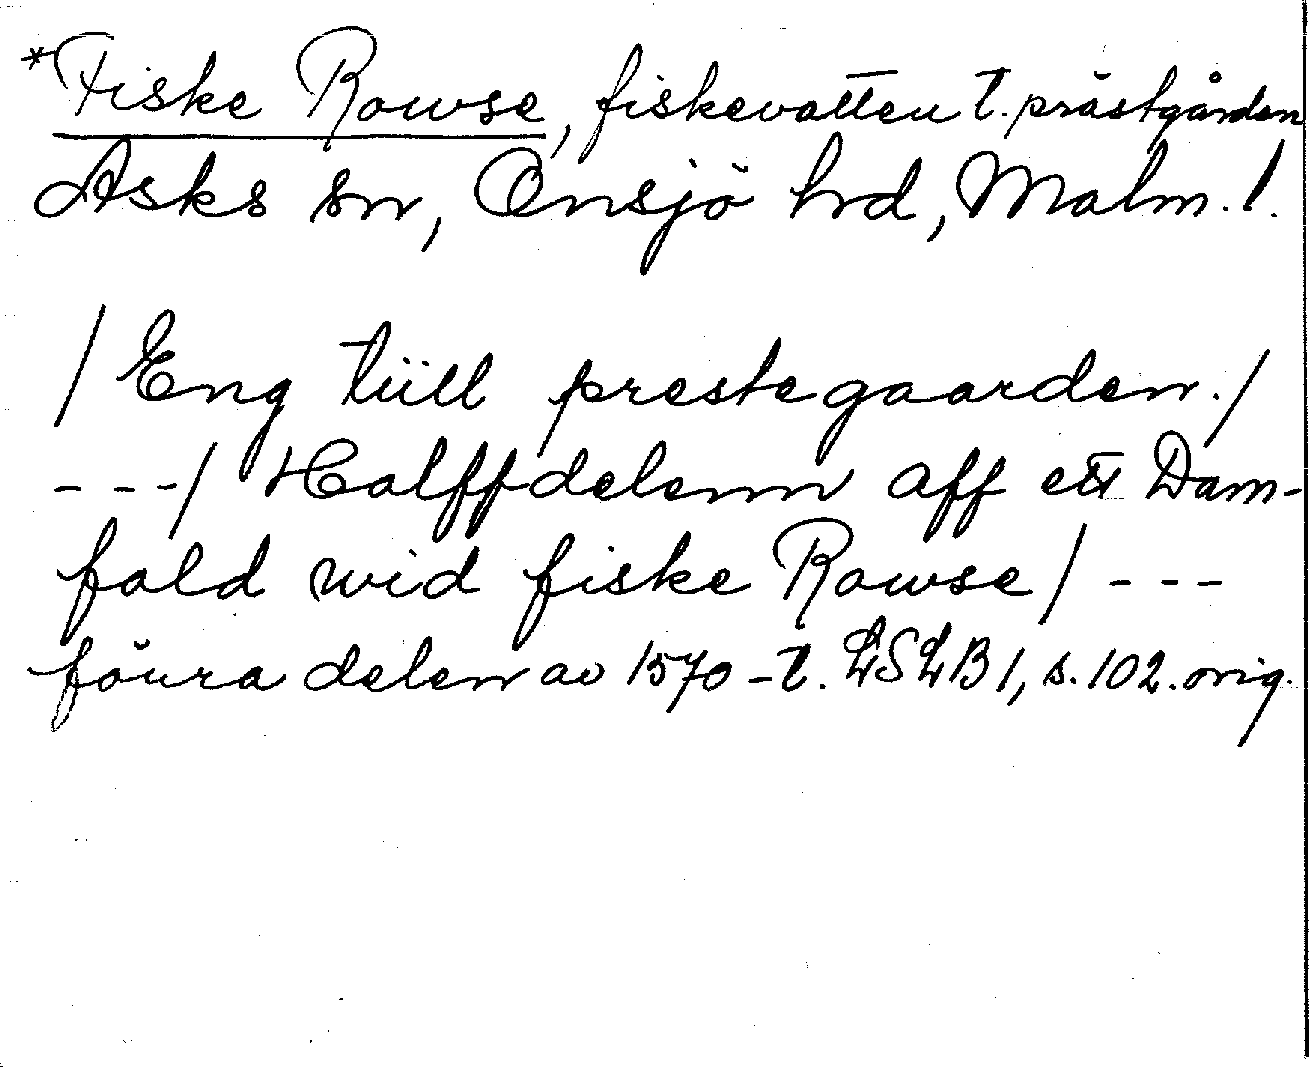 *Fiske Rowse, fiskevatten t. prästgården
Asks sn, Onsjö hrd, Malm. l.
/ Eng tiill prestegaarden. /
---/ Halffdelenn aff ett Dam-
fald wid fiske Rowse / ---
förra delen av 1570-t. LSLB 1, s. 102. orig.